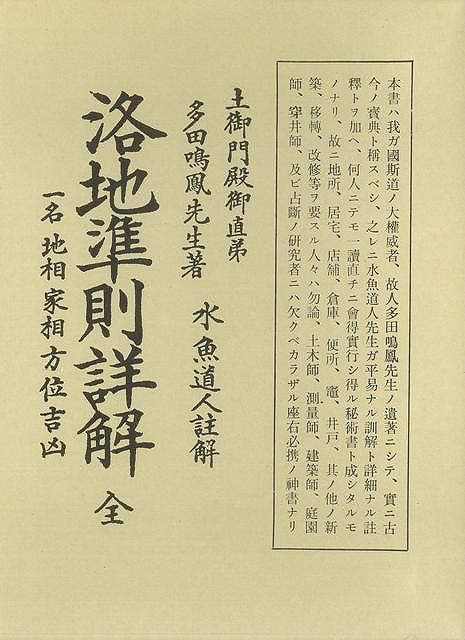 本書ハ我ガ國斯道ノ大權威者、故人多田鳴鳳先生ノ遺著ニシテ、實ニ古
今ノ寶典ト稱スベシ、之レニ水魚道人先生ガ平易ナル訓解ト詳細ナル註
釋トヲ加ヘ、何人ニテモ一讀直チニ會得實行シ得ル秘術書ト成シタルモ
ノナリ、故ニ地所、居宅、店舖、倉庫、便所、竈、井戸、其ノ他ノ新
築、移轉、改修等ヲ要スル人々ハ勿論、土木師、測量師、建築師、庭園
師、穿井師、及ビ占斷ノ研究者ニハ欠クベカラザル座右必携ノ神書ナリ
土御門殿御直弟
多田鳴鳳先生著 水魚道人註解
洛地準則詳解 全
一名 地相家相方位吉凶